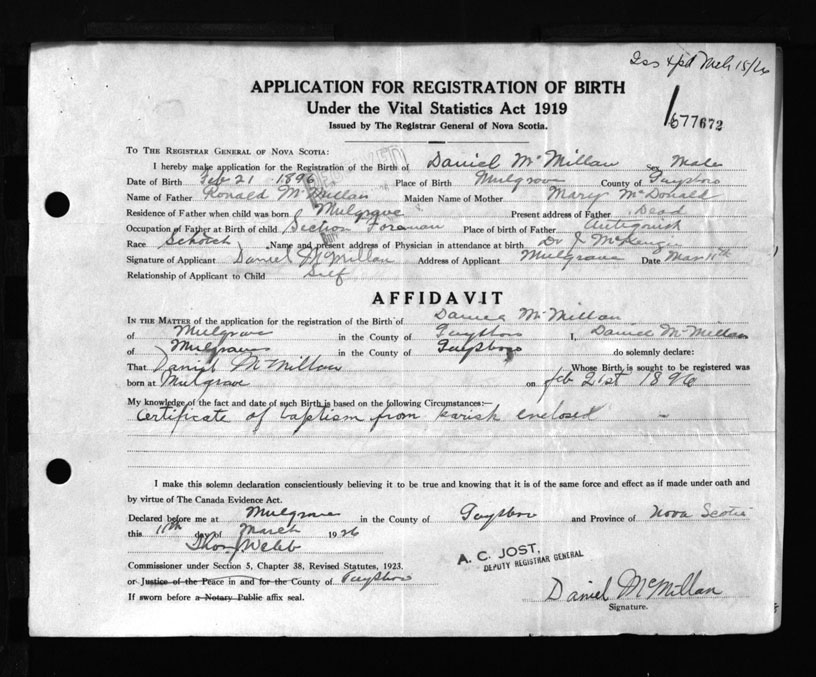 Iss & pd Mch 15/26
APPLICATION FOR REGISTRATION OF BIRTH
Under the Vital Statistics Act 1919
Issued by The Registrar General of Nova Scotia.
677672
TO THE REGISTRAR GENERAL OF NOVA SCOTIA:
I hereby make application for the Registration of the Birth of Daniel McMillan Sex Male
Date of Birth Feb 21 1896 Place of Birth Mulgrave County of Guysboro
Name of Father Ronald McMillan Maiden Name of Mother Mary McDonald
Residence of Father when child was born Mulgrave Present address of Father Dead
Occupation of Father at Birth of child Section Foreman Place of birth of Father Antigonish
Race Schotch Name and present address of Physician in attendance at birth Dr J McKenzie
Signature of Applicant Daniel McMillan Address of Applicant Mulgrave Date Mar 11th
Relationship of Applicant to Child Self
AFFIDAVIT
IN THE MATTER of the application for the registration of the Birth of Daniel McMillan
of Mulgrave in the County of Guysboro I, Daniel McMillan
of Mulgrave in the County of Guysboro do solemnly declare:
That Daniel McMillan Whose Birth is sought to be registered was
born at Mulgrave on Feb 21st 1896
My knowledge of the fact and date of such Birth is based on the following Circumstances:—
Certificate of baptism from parish enclosed —
I make this solemn declaration conscientiously believing it to be true and knowing that it is of the same force and effect as if made under oath and
by virtue of The Canada Evidence Act.
Declared before me at Mulgrave in the County of Guysboro and Province of Nova Scotia
this 11th day of March 1926
Thos J Webb
Commissioner under Section 5, Chapter 38, Revised Statutes, 1923.
A. C. JOST,
DEPUTY REGISTRAR GENERAL
or Justice of the Peace in and for the County of Guysboro
If sworn before a Notary Public affix seal.
Daniel McMillan
Signature.